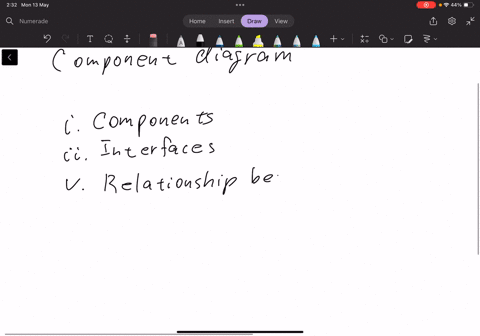 2:32 Mon 13 May
44%
Numerade
Home Insert Draw View
Component diagram
i. Components
ii. Interfaces
v. Relationship be